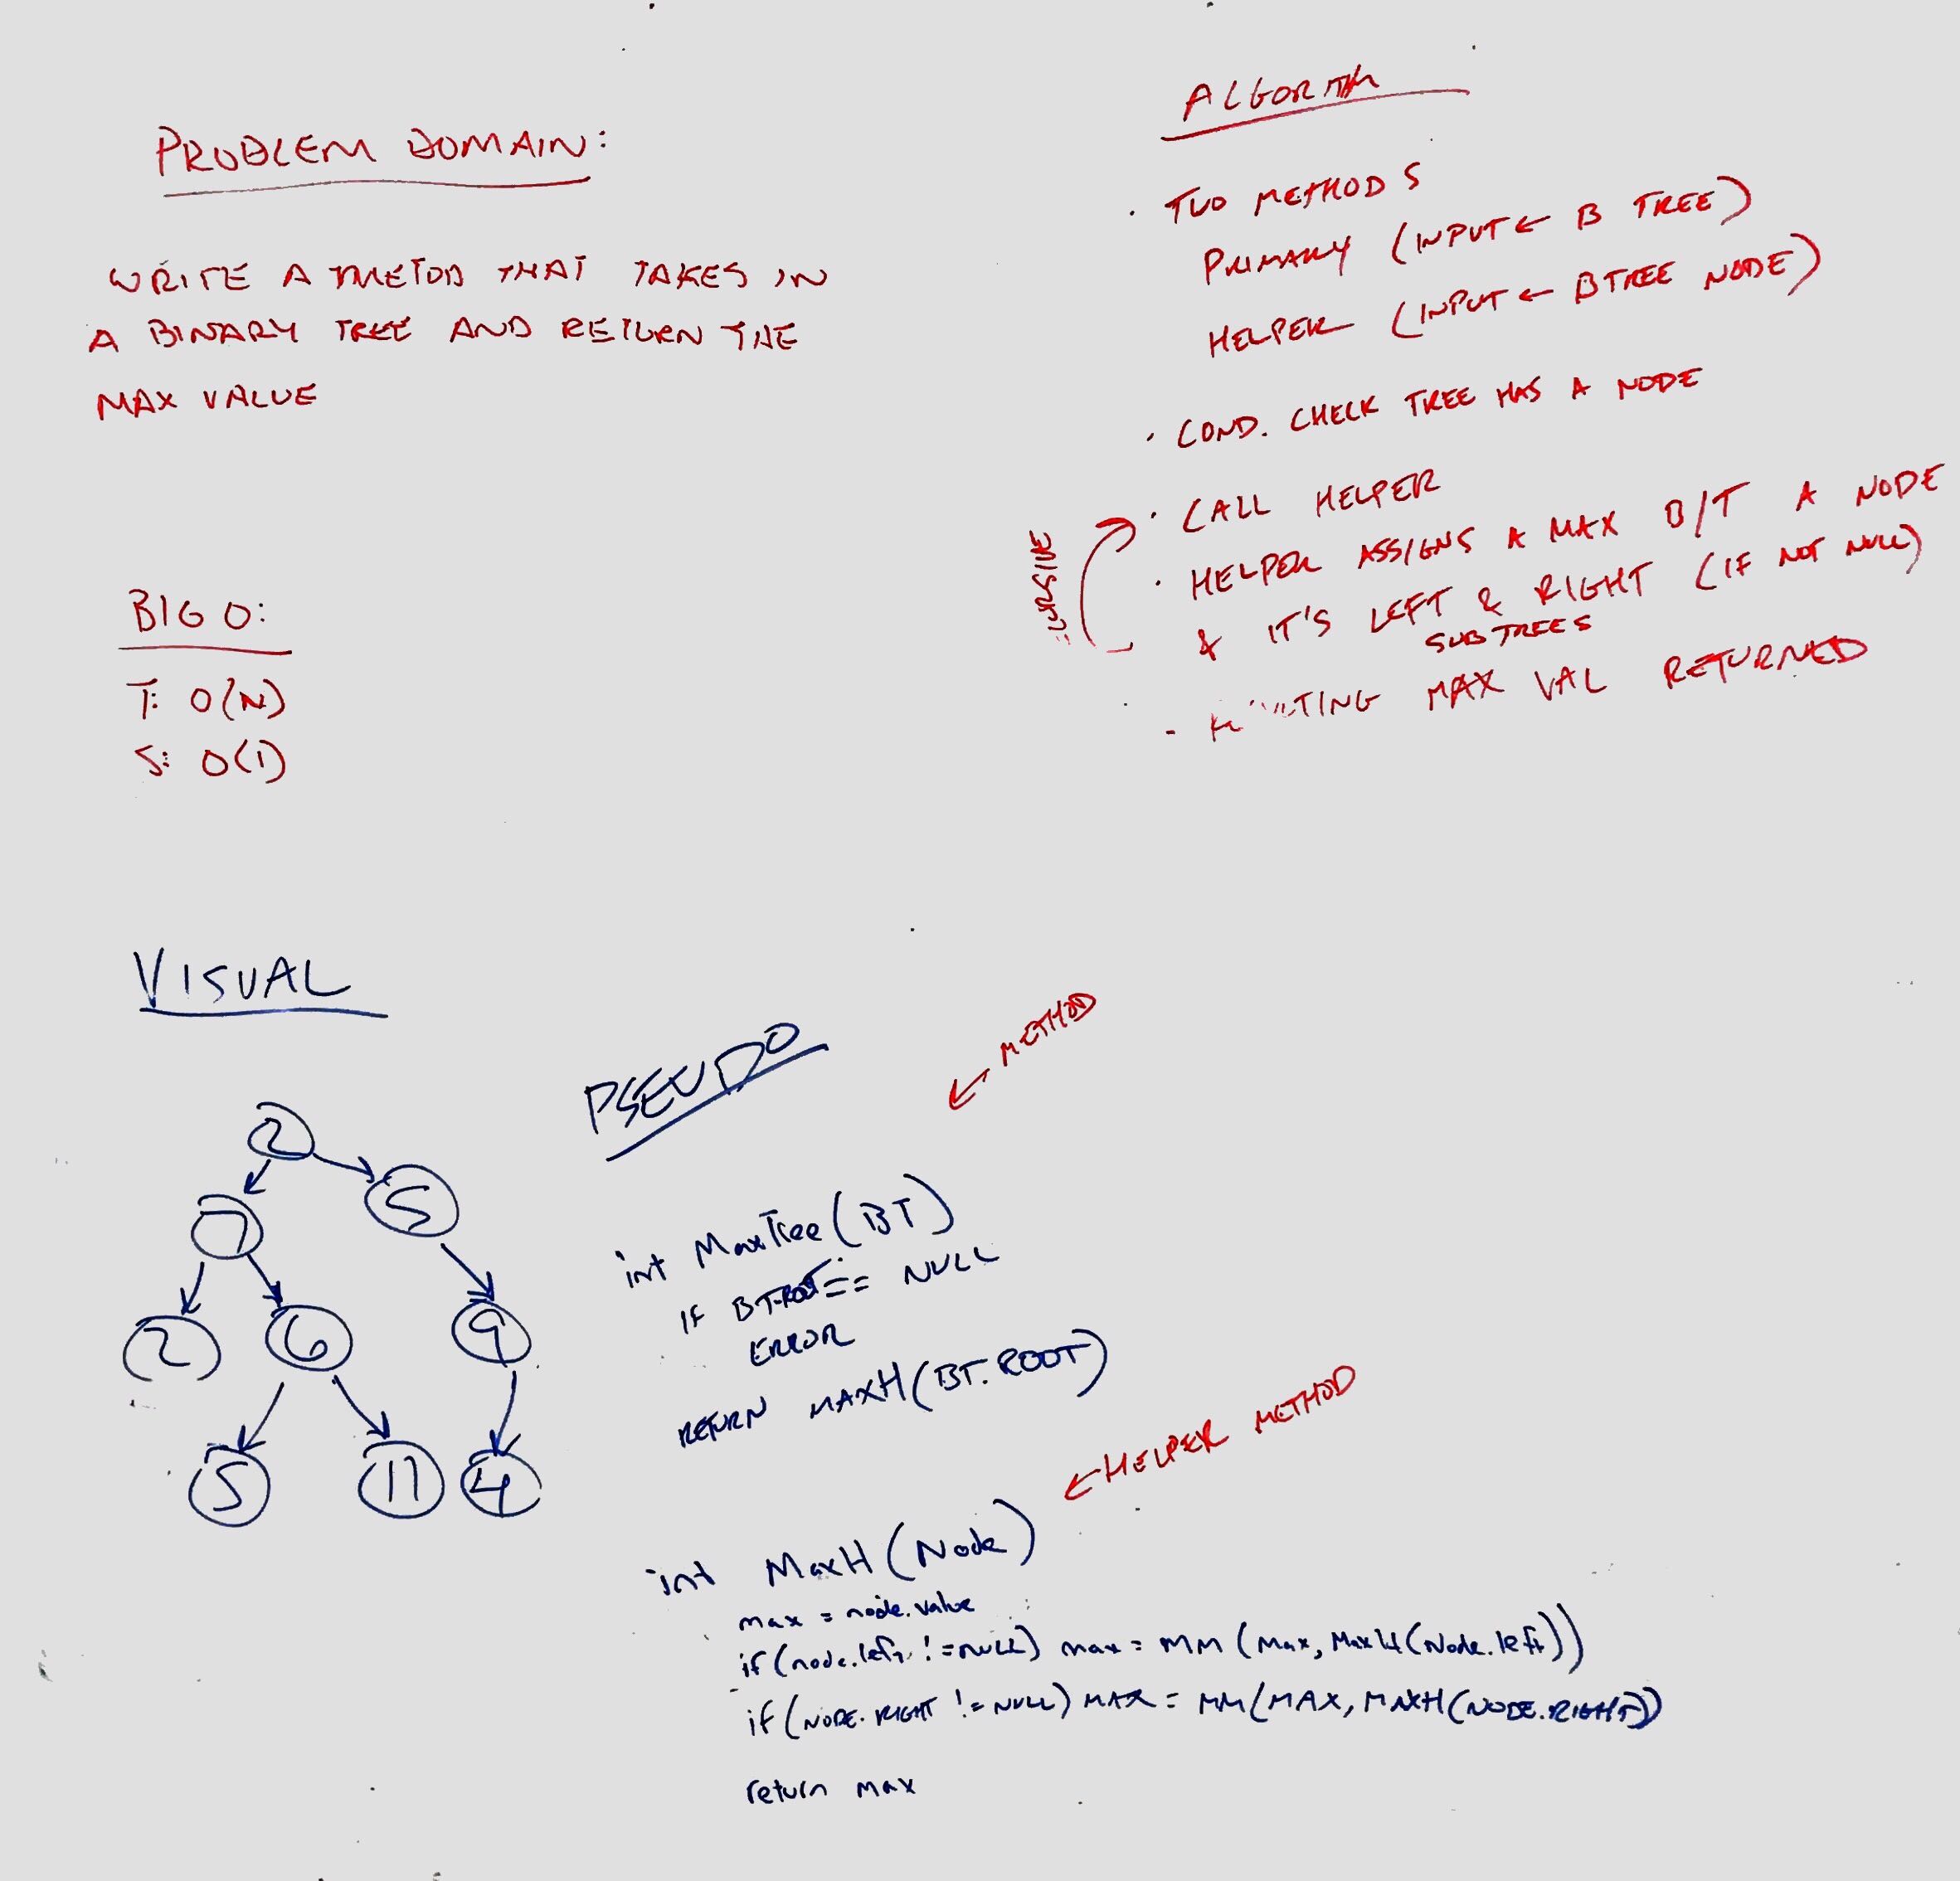 PROBLEM DOMAIN:
WRITE A METOD THAT TAKES IN
A BINARY TREE AND RETURN THE
MAX VALUE
BIG O:
T: O(N)
S: O(1)
ALGORITM
· TWO METHODS
PRIMARY (INPUT ← B TREE)
HELPER (INPUT ← BTREE NODE)
· COND. CHECK TREE HAS A NODE
· CALL HELPER
· HELPER ASSIGNS A MAX B/T A NODE
& IT'S LEFT & RIGHT (IF NOT NULL)
SUBTREES
- MAX VAL RETURNED
VISUAL
2
7
5
2
6
9
5
11
4
PSEUDO
← METHOD
int MaxTree (BT)
IF BT.ROOT == NULL
ERROR
RETURN MAXH(BT.ROOT)
← HELPER METHOD
int MaxH (Node)
max = node.value
if (node.left != NULL) max = MM (Max, MaxH(Node.left))
if (NODE.RIGHT != NULL) MAX = MM(MAX, MAXH(NODE.RIGHT))
return max